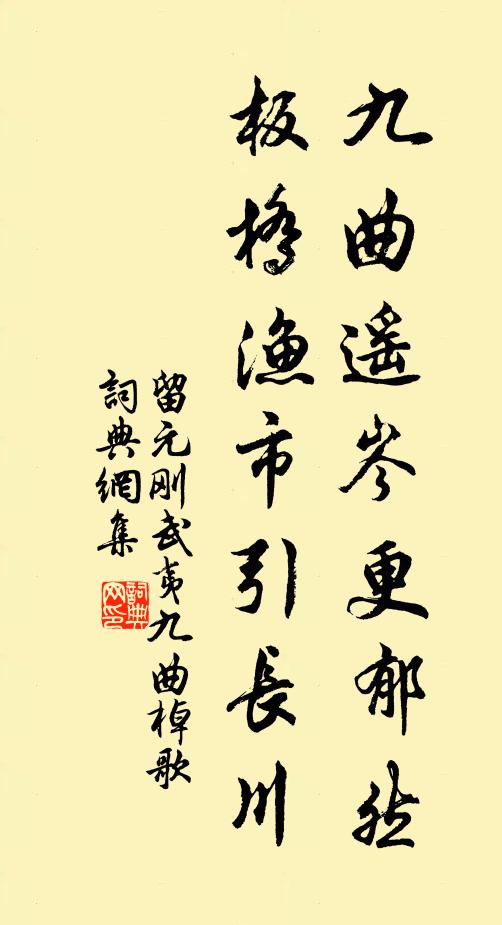 九曲遥岑更郁然
板橋漁市引長川
留元刚武夷九曲棹歌
詞典網集
詞典
网印